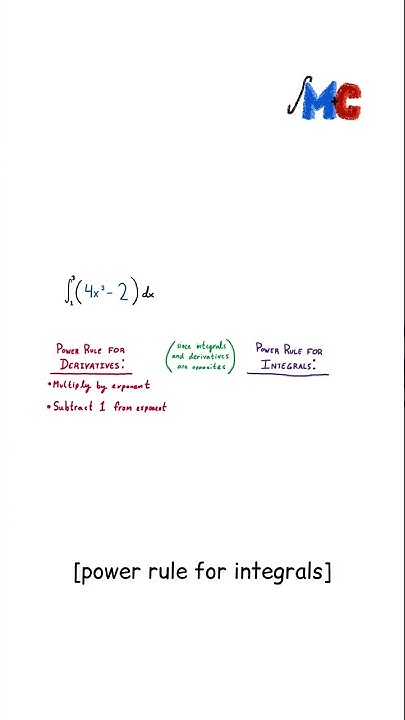 ∫MC
∫₁³(4x³-2)dx
POWER RULE FOR
DERIVATIVES:
• Multiply by exponent
• Subtract 1 from exponent
(since integrals
and derivatives
are opposites)
POWER RULE FOR
INTEGRALS:
[power rule for integrals]